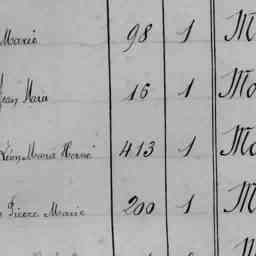 Marie 98 1 M
Jean Marie 16 1 Mo
Léon Marie Hervé 413 1 Mo
Pierre Marie 200 1 M